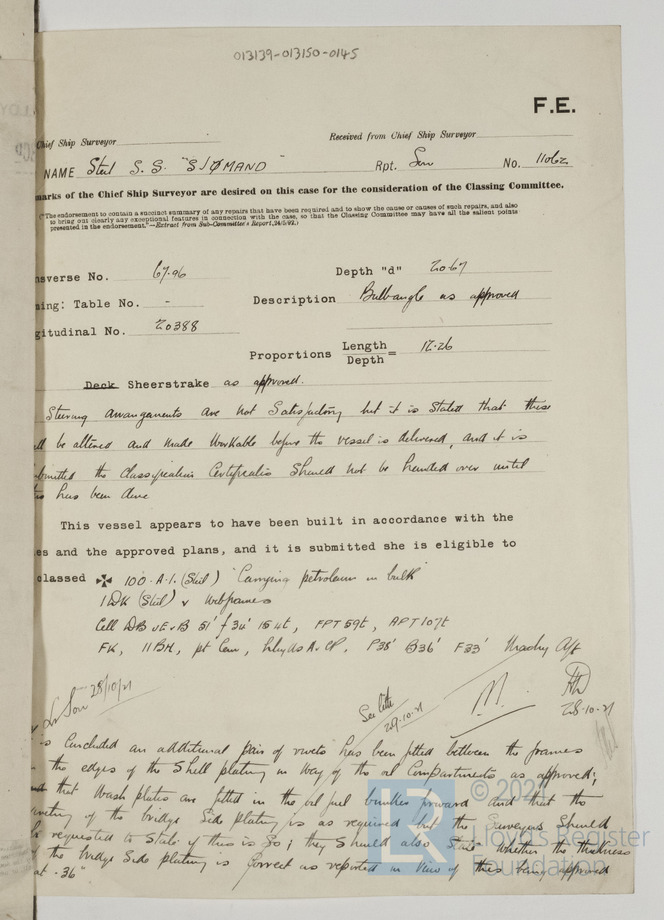 013139-013150-0145
F.E.
Chief Ship Surveyor
Received from Chief Ship Surveyor
NAME Steel S.S. "SJØMAND"
Rpt. Sun No. 11062
marks of the Chief Ship Surveyor are desired on this case for the consideration of the Classing Committee.
("The endorsement to contain a succinct summary of any repairs that have been required and to show the cause or causes of such repairs, and also
to bring out clearly any exceptional features in connection with the case, so that the Classing Committee may have all the salient points
presented in the endorsement."—Extract from Sub-Committee's Report,
nsverse No. 67.96
Depth "d" 20.67
ing: Table No. -
Description Bulbangle as approved
gitudinal No. 20388
Proportions Length
Depth = 12.26
Deck Sheerstrake as approved.
Steering arrangements are not satisfactory but it is stated that these
ll be altered and made workable before the vessel is delivered, and it is
ubmitted the classification Certificate should not be handed over until
is has been done
This vessel appears to have been built in accordance with the
es and the approved plans, and it is submitted she is eligible to
classed ✠ 100.A.1. (Steel) "Carrying petroleum in bulk"
1DK (Steel) & Webframes
Cell DB 51' f 34' 154t, FPT 59t, APT 107t
FK, 11BH, pt Cem, Lloyds A & CP. P38' B36' F33' Machy Aft
28/10/21
28.10.21
is concluded an additional pair of rivets has been fitted between the frames
the edges of the shell plating in way of the oil compartments as approved;
that wash plates are fitted in the oil fuel bunker forward and that the
riveting of the bridge side plating is as required but the Surveyors should
requested to state if this is so; they should also state whether the thickness
the bridge side plating is correct as reported in view of this being approved
at .36"
© 2021
LR
Lloyd's Register
Foundation